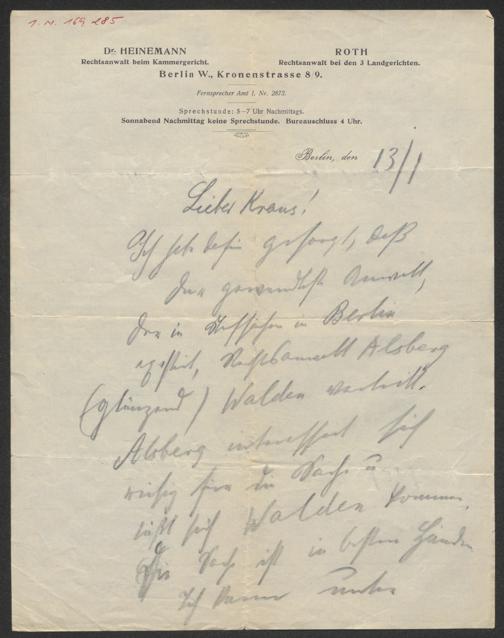 I. N. 169.285
Dr. HEINEMANN
Rechtsanwalt beim Kammergericht.
ROTH
Rechtsanwalt bei den 3 Landgerichten.
Berlin W., Kronenstrasse 8/9.
Fernsprecher Amt 1, Nr. 2873.
Sprechstunde: 5–7 Uhr Nachmittags.
Sonnabend Nachmittag keine Sprechstunde. Bureauschluss 4 Uhr.
Berlin, den 13/1
Lieber Kraus!
Ich habe dafür gesorgt, daß
der gewandteste Anwalt,
der in in Berlin
existirt, Rechtsanwalt Alsberg
(glänzend) Walden vertritt.
Alsberg interessirt sich
riesig für die Sache u
läßt sich Walden kommen.
Die Sache ist in besten Händen
Ich kann